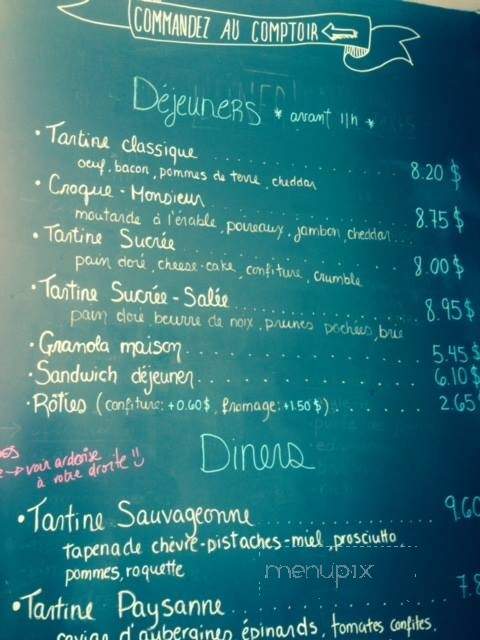 COMMANDEZ AU COMPTOIR
Déjeuners * avant 11h *
• Tartine classique ........ 8.20 $
oeuf, bacon, pommes de terre, cheddar
• Croque-Monsieur ........ 8.75 $
moutarde à l'érable, poireaux, jambon, cheddar...
• Tartine Sucrée ........ 8.00 $
pain doré, cheese-cake, confiture, crumble
• Tartine Sucrée-Salée ........ 8.95 $
pain doré beurre de noix, prunes pochées, brie
• Granola maison ........ 5.45 $
• Sandwich déjeuner ........ 6.10 $
• Rôties (confiture: +0.60$, fromage: +1.50$) ........ 2.65
Diners
→ voir ardoise
à votre droite !!
• Tartine Sauvageonne ........ 9.60
tapenade chèvre-pistaches-miel, prosciutto
pommes, roquette
menupix
• Tartine Paysanne ........ 7.8
caviar d'aubergines épinards, tomates confites,